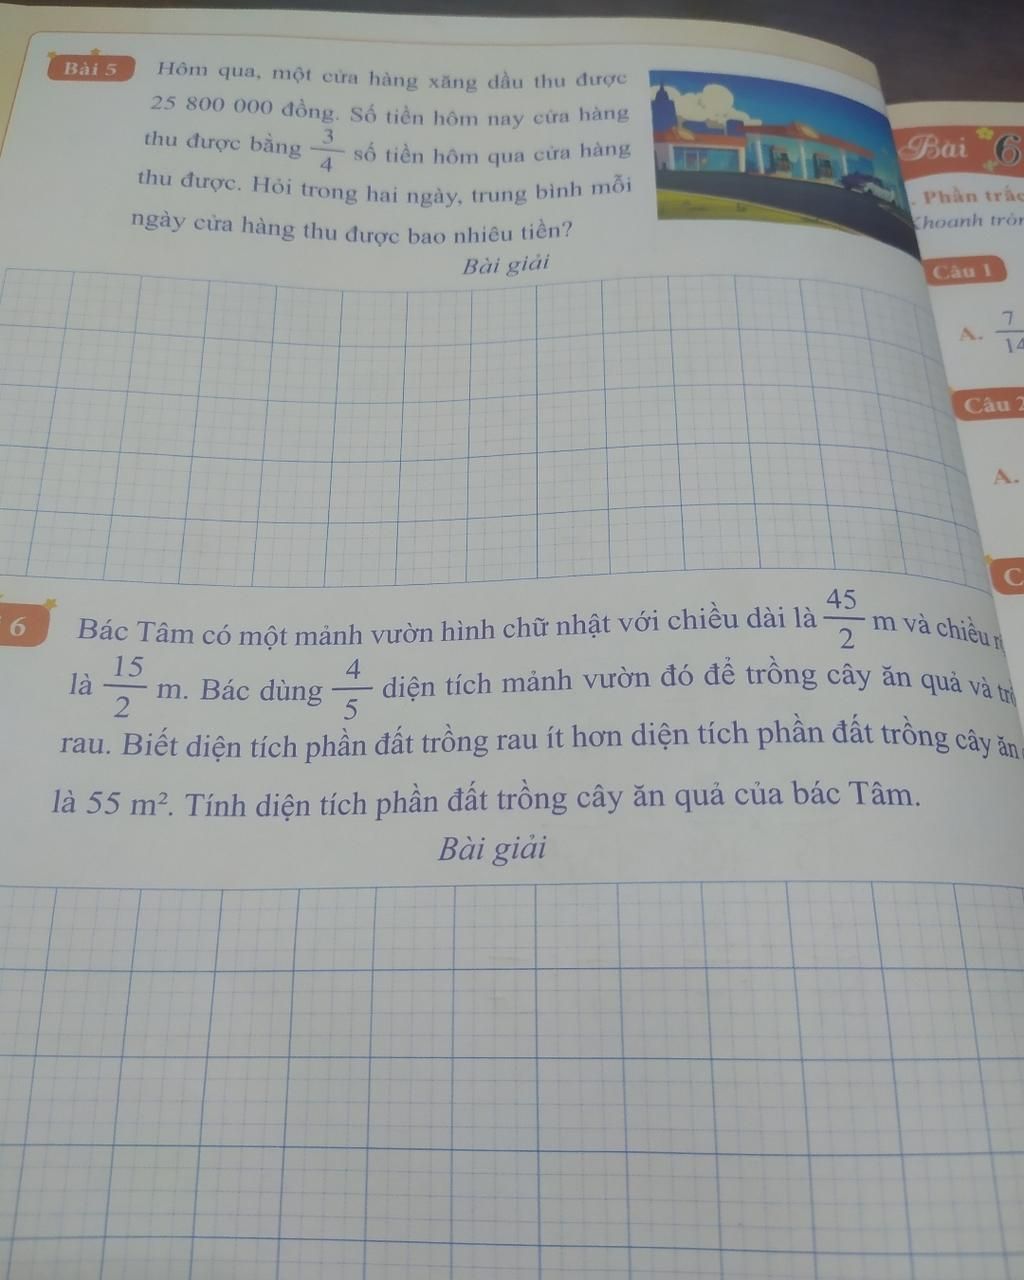 Bài 5 Hôm qua, một cửa hàng xăng dầu thu được
25 800 000 đồng. Số tiền hôm nay cửa hàng
thu được bằng 3/4 số tiền hôm qua cửa hàng
thu được. Hỏi trong hai ngày, trung bình mỗi
ngày cửa hàng thu được bao nhiêu tiền?
Bài giải
6 Bác Tâm có một mảnh vườn hình chữ nhật với chiều dài là 45/2 m và chiều
là 15/2 m. Bác dùng 4/5 diện tích mảnh vườn đó để trồng cây ăn quả và
rau. Biết diện tích phần đất trồng rau ít hơn diện tích phần đất trồng cây ăn
là 55 m². Tính diện tích phần đất trồng cây ăn quả của bác Tâm.
Bài giải
Bài 6
. Phần
Khoanh
Câu 1
A. 7/14
Câu 2
A.
C